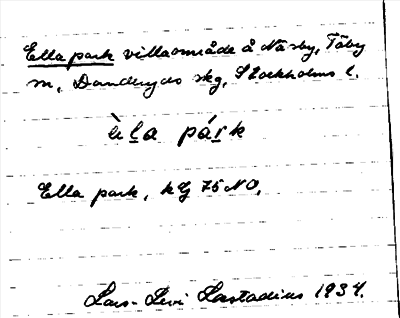 Ella park villaområde å Näsby, Täby
sn, Danderyds skg, Stockholms l.
èla párk
Ella park, kG 75 NO.
Lars-Levi Læstadius 1934.